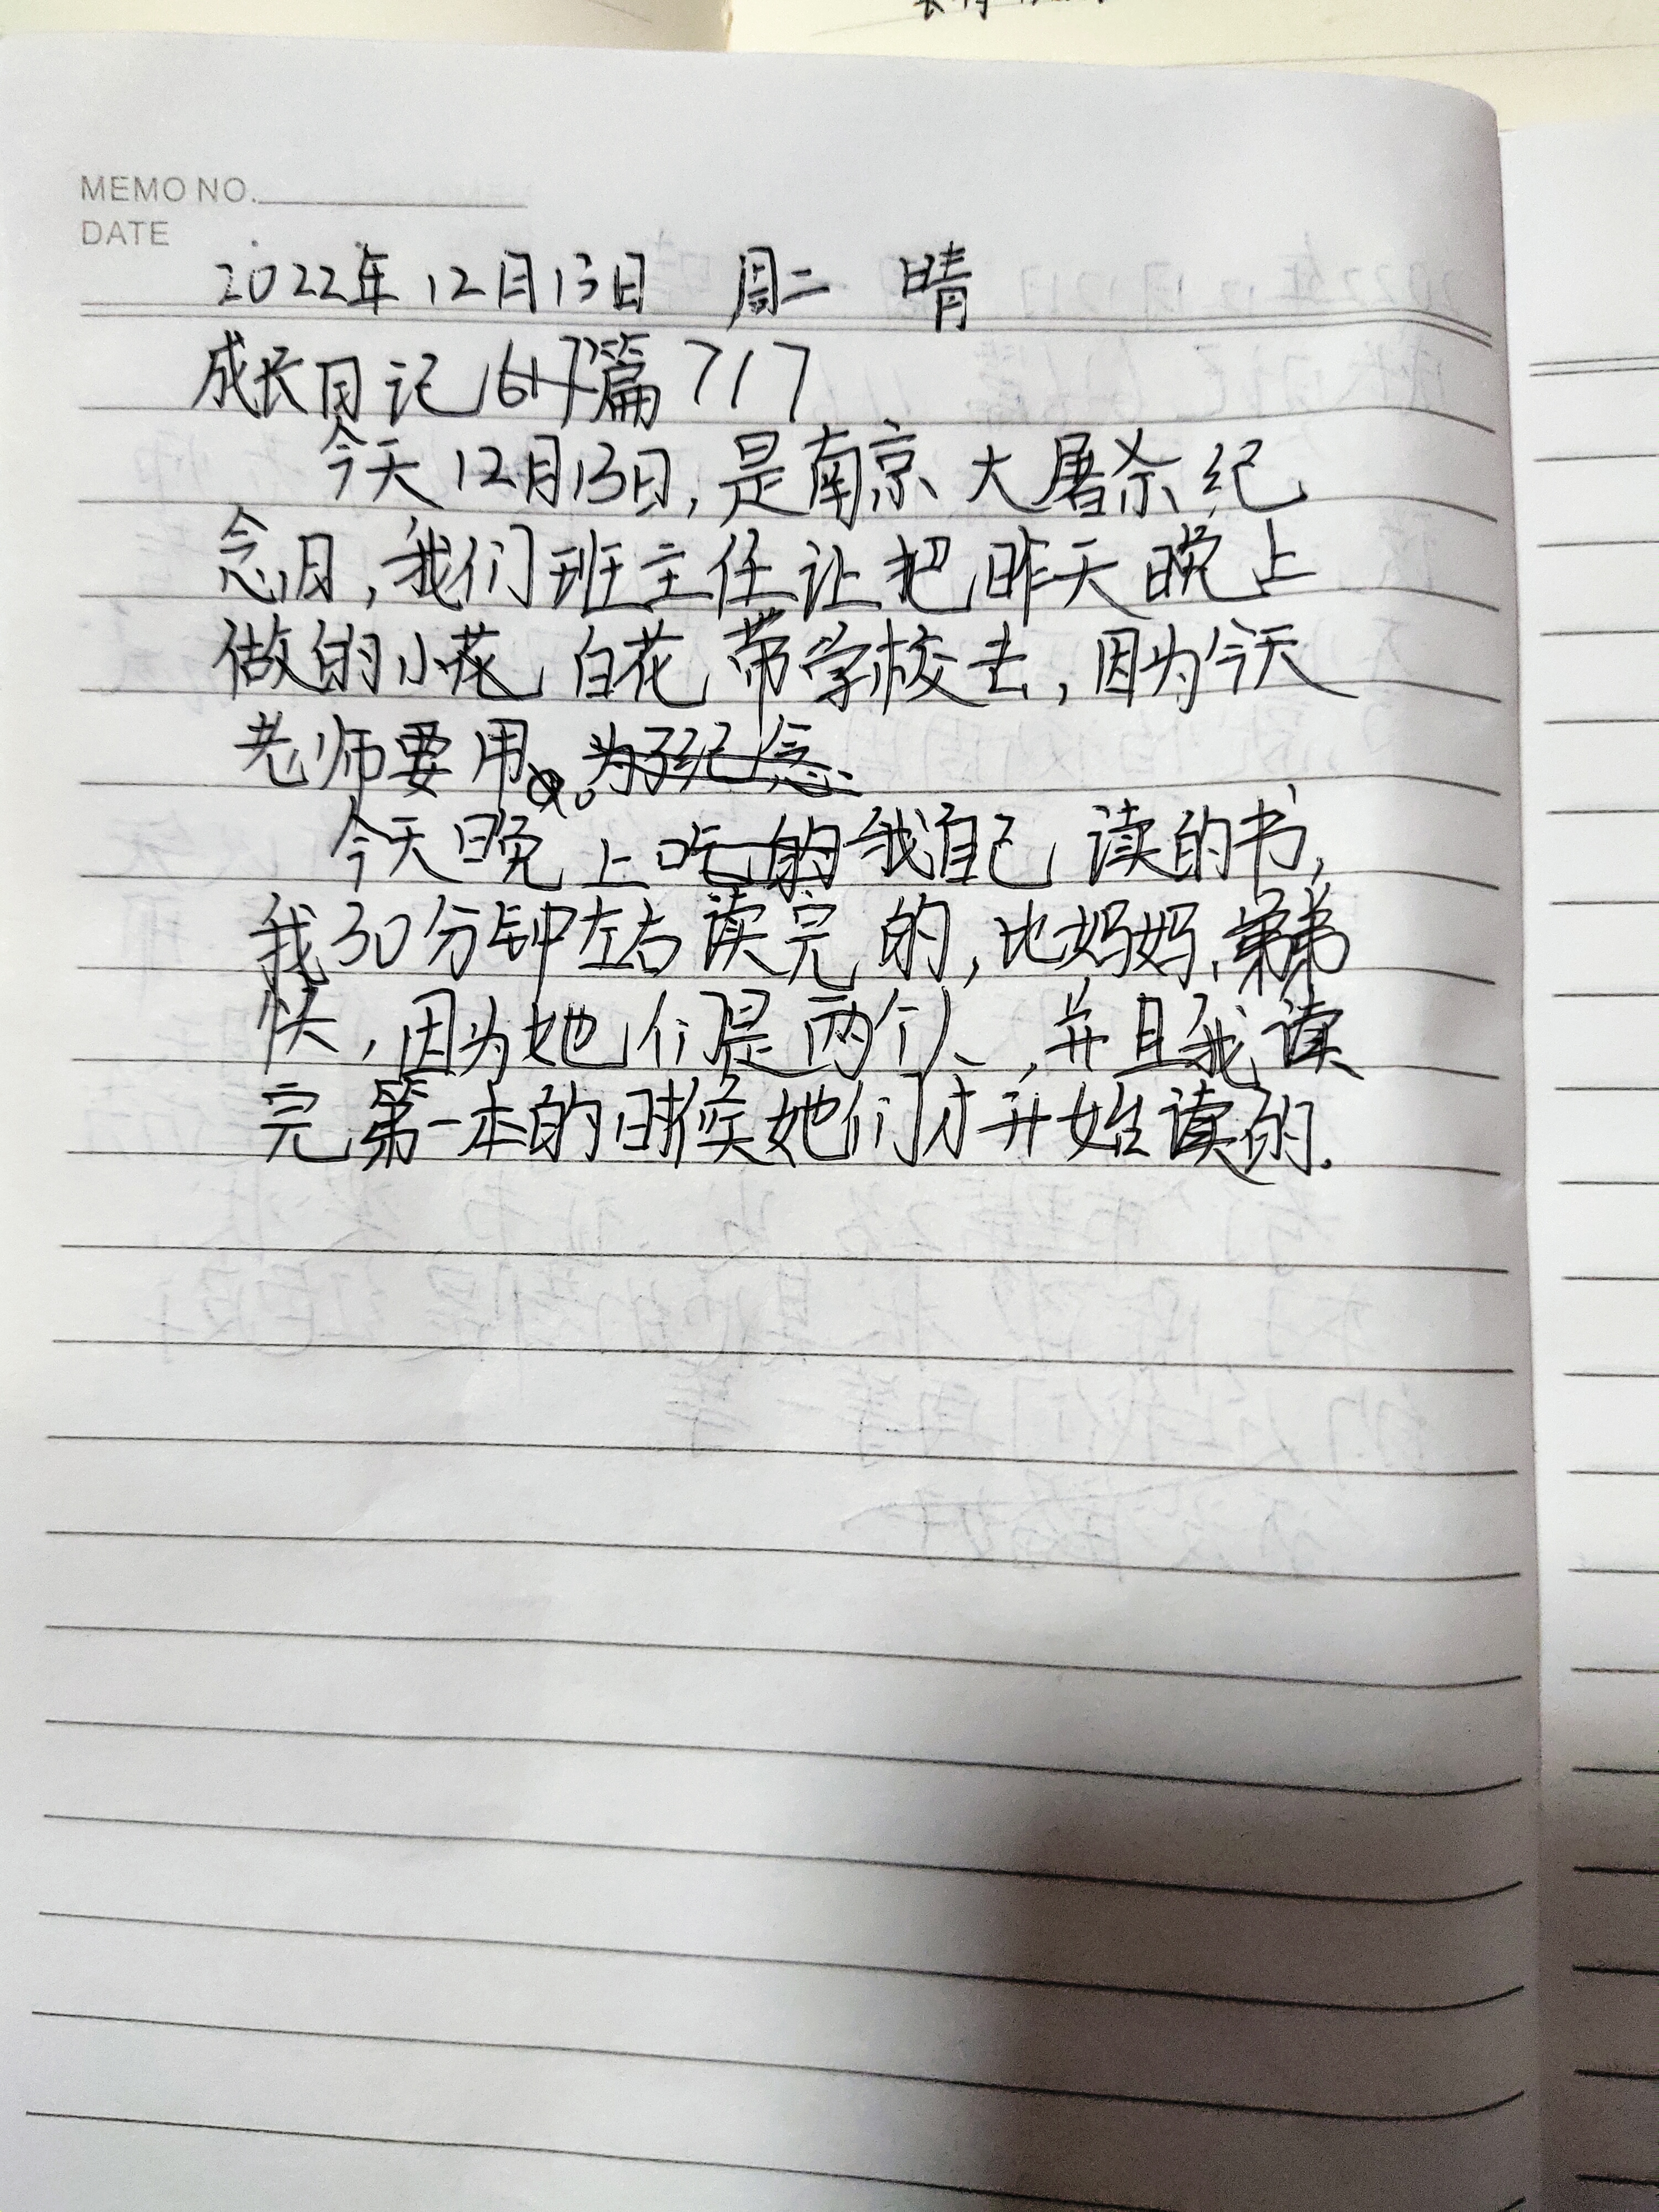 MEMO NO.
DATE
2022年12月13日 周二 晴
成长日记 617篇 717
今天12月13日,是南京大屠杀纪
念日,我们班主任让把昨天晚上
做的小花 白花 带学校去,因为今天
老师要用。为了纪念.
今天晚上吃的我自己读的书,
我30分钟左右读完的,比妈妈、弟弟
快,因为她们是两个人,并且我读
完第一本的时候她们才开始读的.